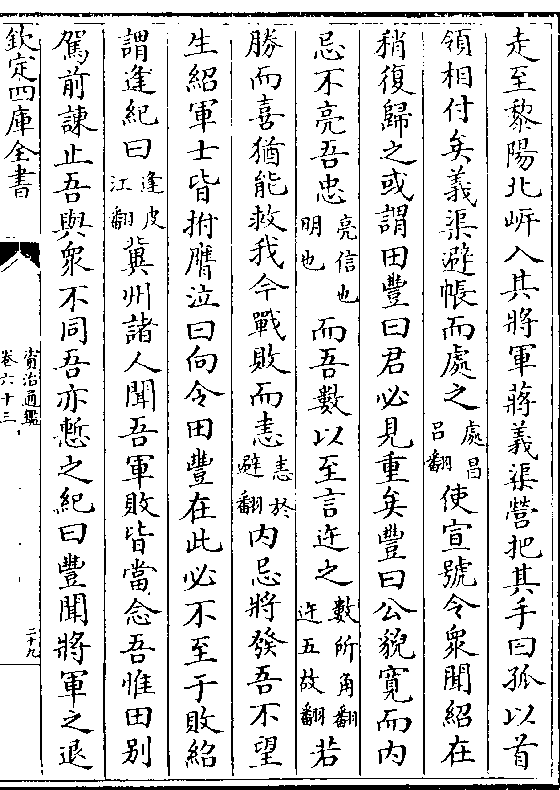 走至黎陽北岍入其將軍蔣義渠營把其手曰孤以首
領相付矣義渠避帳而處之處昌吕翻使宣號令衆聞紹在
稍復歸之或謂田豐曰君必見重矣豐曰公貌寛而内
忌不亮吾忠亮信也明也而吾數以至言迕之數所角翻迕五故翻若
勝而喜猶能救我今戰敗而恚恚於避翻内忌將發吾不望
生紹軍士皆拊膺泣曰向令田豐在此必不至于敗紹
謂逢紀曰逢皮江翻冀州諸人聞吾軍敗皆當念吾惟田别
駕前諫止吾與衆不同吾亦慙之紀曰豐聞將軍之退
欽定四庫全書
資治通鑑
卷六十三
二十九